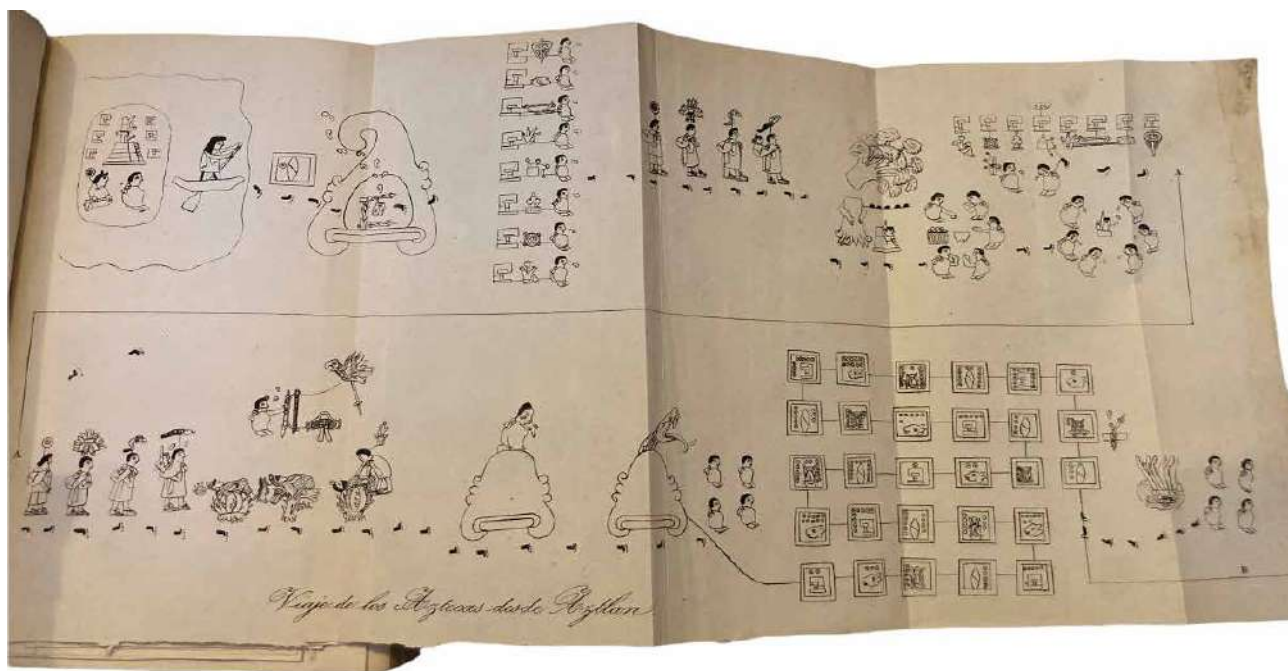 Viaje de los Aztecas desde Aztlan